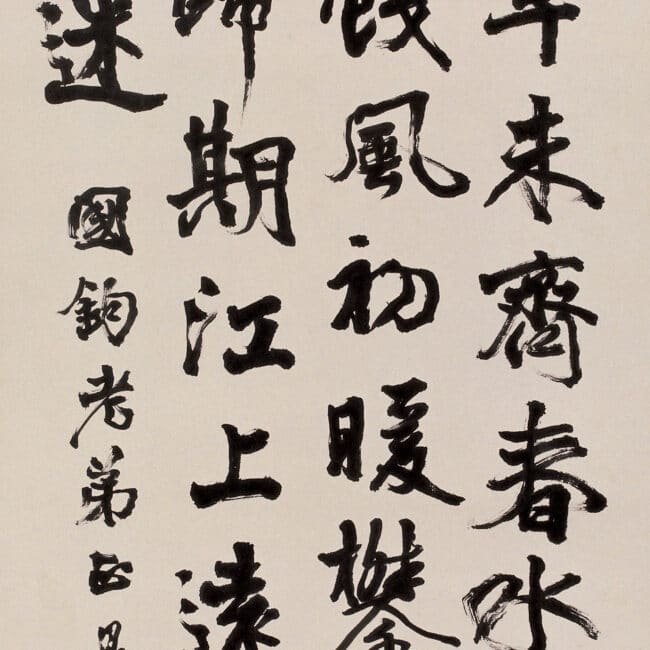 未齊春水
風初暖
歸期江上遠
迷
國鈞老弟正